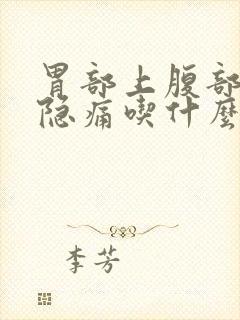 胃部上腹部
隐痛喫什麽
李芳